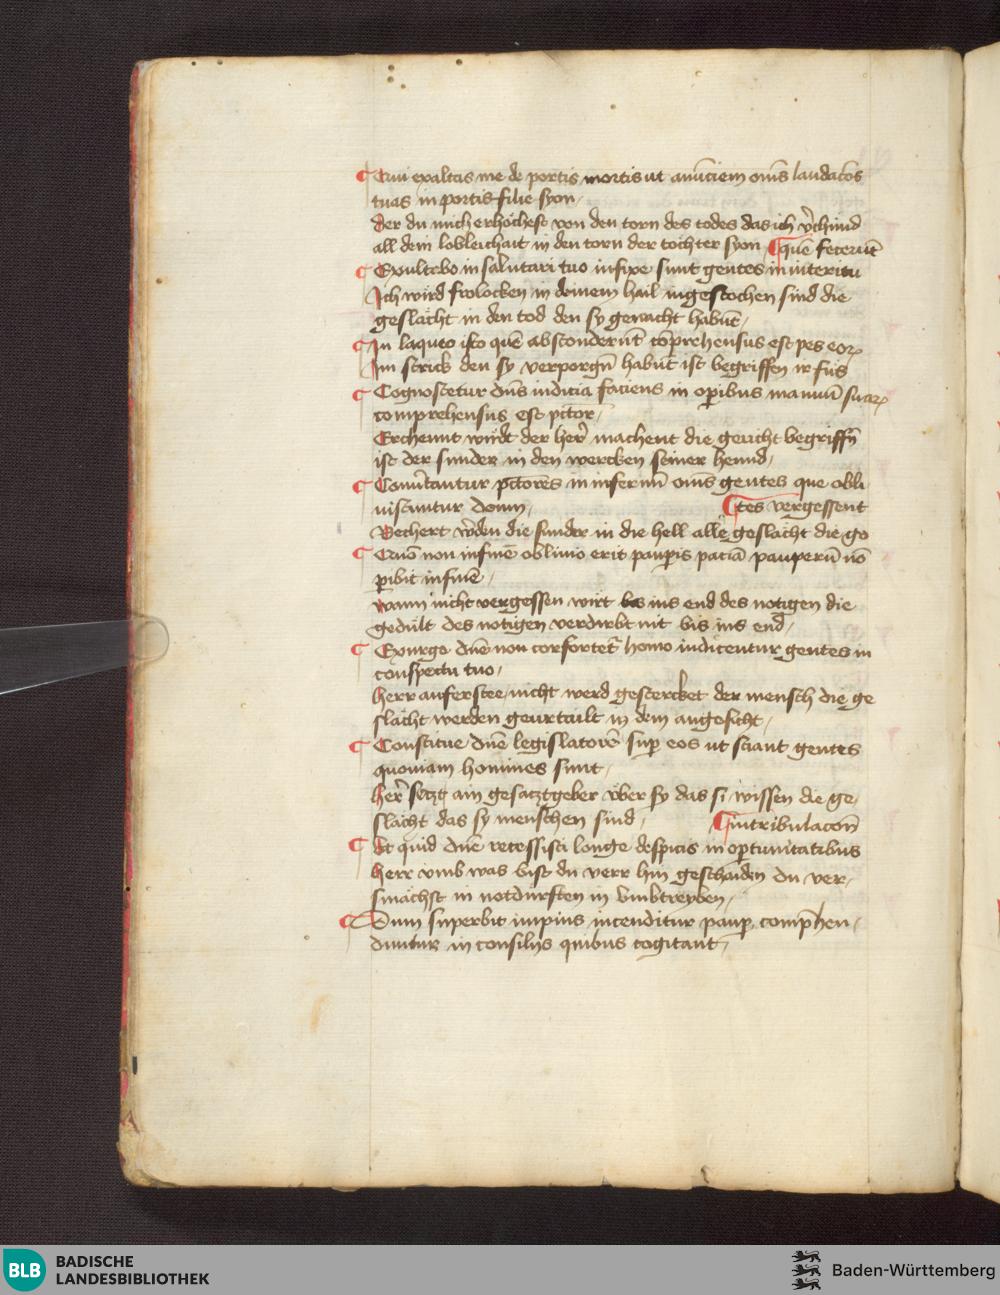 Qui exaltas me de portis mortis ut anūciem om̄s laudacōes
tuas in portis filie syon
Der du mich erhöchest von den torn des todes das ich v̓chünd
all dein lobleichait in den torn der tochter syon quē fecerūt
Exultabo in salutari tuo infixe sunt gentes in interitu
Ich wird frolocken in deinem hail ingestochen sind die
geslächt in den tod den sy gemacht habn̄t
In laqueo isto quē absconderūt cōprehensus est pes eoꝝ
Im strick den sy verporgn̄ habn̄t ist begriffen ir fus
Cognoscetur dn̄s iudicia faciens in oꝑibus manuū suaꝝ
comprehensus est pctor
Erchennt wirdt der her̓ machent die gericht begriffn̄
ist der sunder in den wercken seiner hennd
Conūtantur pctores in infernū om̄s gentes que obli
uiscuntur deum
tes vergessent
Bechert w̓den die sunder in die hell alle geslächt die go
Qm̄ non in finē obliuio erit paupis paciā pauperū nō
ꝑibit in finē
wann nicht vergessen wirt bis ins end des notigen die
gedult des notigen verdirbt nit bis ins end
Exurge dn̄e non confortet᷑ homo iudicentur gentes in
conspectu tuo
herr aufferstee nicht werd gestercket der mensch die ge
slächt werden geurtailt in dem angesicht
Constitue dn̄e legislatorē suꝑ eos ut sciant gentes
quoniam homines sunt
her̓ setzt ain gesatzgeber vber sy das si wissen die ge
slächt das sy menschen sind
in tribulacōn̄
Ut quid dn̄e recessisti longe despicis in oportunitatibus
herr vmb was bist du verr hin geschaiden du ver
smächst in notdürften in vmbtreyben
Dum superbit impius incenditur pauꝑ comp̄hen
duntur in consilijs quibus cogitant
BLB
BADISCHE
LANDESBIBLIOTHEK
Baden-Württemberg